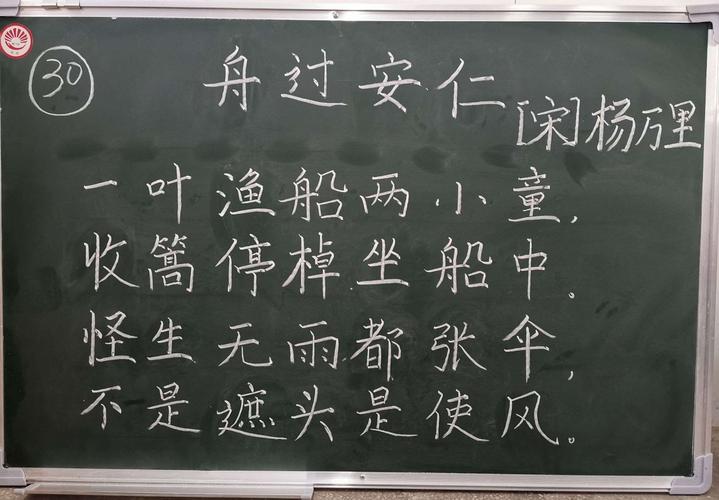 30
舟过安仁
[宋]杨万里
一叶渔船两小童,
收篙停棹坐船中。
怪生无雨都张伞,
不是遮头是使风。